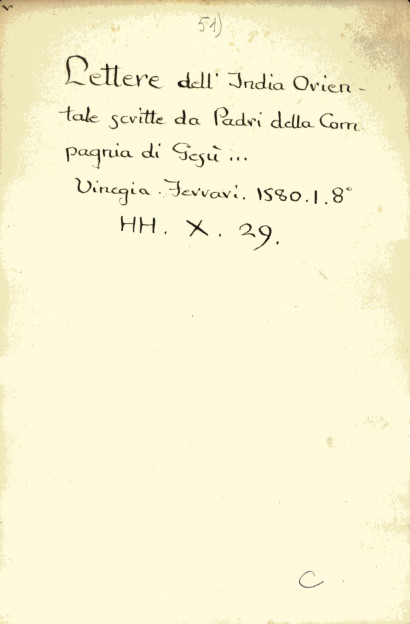 51)
Lettere dell' India Orien-
tale scritte da Padri della Com
pagnia di Gesù ...
Vinegia. Ferrari. 1580.1.8°
HH. X. 29.
C